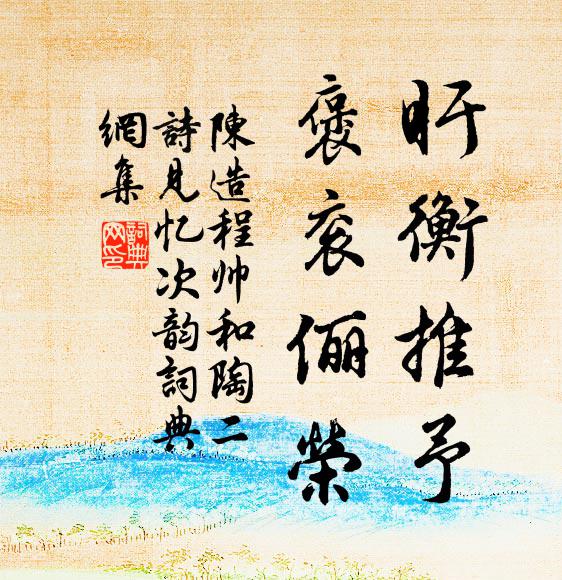 盱衡推予
褒衮俪榮
陳造程帅和陶二
詩見忆次韵詞典
網集
詞典网印